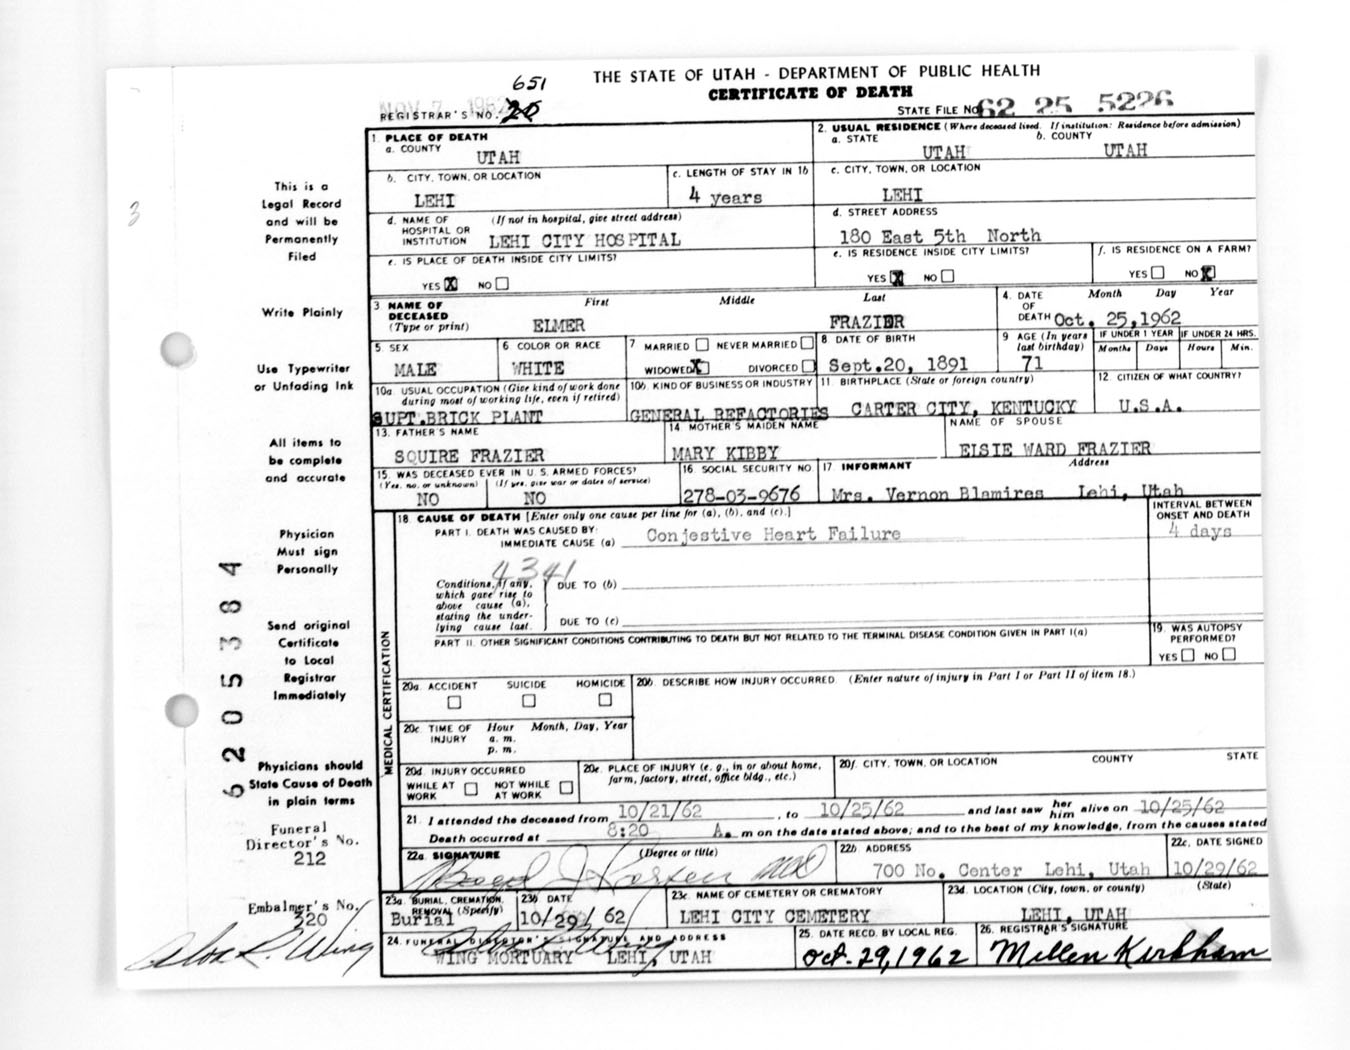 651
THE STATE OF UTAH - DEPARTMENT OF PUBLIC HEALTH
CERTIFICATE OF DEATH
NOV 7 1962
REGISTRAR'S NO. 20
STATE FILE NO. 62 25 5226
1. PLACE OF DEATH
a. COUNTY
UTAH
2. USUAL RESIDENCE (Where deceased lived. If institution: Residence before admission)
a. STATE
UTAH
b. COUNTY
UTAH
b. CITY, TOWN, OR LOCATION
LEHI
c. LENGTH OF STAY IN 1b
4 years
c. CITY, TOWN, OR LOCATION
LEHI
d. NAME OF HOSPITAL OR INSTITUTION (If not in hospital, give street address)
LEHI CITY HOSPITAL
d. STREET ADDRESS
180 East 5th North
e. IS PLACE OF DEATH INSIDE CITY LIMITS?
YES X NO
e. IS RESIDENCE INSIDE CITY LIMITS?
YES X NO
f. IS RESIDENCE ON A FARM?
YES NO X
3 NAME OF DECEASED (Type or print)
First Middle Last
ELMER FRAZIER
4. DATE OF DEATH Month Day Year
Oct. 25,1962
5. SEX
MALE
6. COLOR OR RACE
WHITE
7 MARRIED NEVER MARRIED
WIDOWED X DIVORCED
8 DATE OF BIRTH
Sept.20, 1891
9 AGE (In years last birthday)
71
IF UNDER 1 YEAR
Months Days
IF UNDER 24 HRS.
Hours Min.
10a. USUAL OCCUPATION (Give kind of work done during most of working life, even if retired)
SUPT.BRICK PLANT
10b. KIND OF BUSINESS OR INDUSTRY
GENERAL REFACTORIES
11. BIRTHPLACE (State or foreign country)
CARTER CITY, KENTUCKY
12 CITIZEN OF WHAT COUNTRY?
U.S.A.
13. FATHER'S NAME
SQUIRE FRAZIER
14 MOTHER'S MAIDEN NAME
MARY KIBBY
NAME OF SPOUSE
ELSIE WARD FRAZIER
15. WAS DECEASED EVER IN U.S. ARMED FORCES?
(Yes, no, or unknown) (If yes, give war or dates of service)
NO NO
16. SOCIAL SECURITY NO.
278-03-9676
17. INFORMANT Address
Mrs. Vernon Blamires Lehi, Utah
MEDICAL CERTIFICATION
18. CAUSE OF DEATH [Enter only one cause per line for (a), (b), and (c).]
INTERVAL BETWEEN ONSET AND DEATH
PART I. DEATH WAS CAUSED BY:
IMMEDIATE CAUSE (a) Conjestive Heart Failure
4 days
4341
Conditions, if any, which gave rise to above cause (a), stating the underlying cause last.
DUE TO (b)
DUE TO (c)
PART II. OTHER SIGNIFICANT CONDITIONS CONTRIBUTING TO DEATH BUT NOT RELATED TO THE TERMINAL DISEASE CONDITION GIVEN IN PART I(a)
19. WAS AUTOPSY PERFORMED?
YES NO
20a. ACCIDENT SUICIDE HOMICIDE
20b. DESCRIBE HOW INJURY OCCURRED. (Enter nature of injury in Part I or Part II of item 18.)
20c. TIME OF INJURY Hour Month, Day, Year
a. m.
p. m.
20d. INJURY OCCURRED
WHILE AT WORK NOT WHILE AT WORK
20e. PLACE OF INJURY (e. g., in or about home, farm, factory, street, office bldg., etc.)
20f. CITY, TOWN, OR LOCATION COUNTY STATE
21. I attended the deceased from 10/21/62, to 10/25/62 and last saw her him alive on 10/25/62
Death occurred at 8:20 A. m on the date stated above; and to the best of my knowledge, from the causes stated
22a. SIGNATURE (Degree or title)
22b. ADDRESS
700 No. Center Lehi, Utah
22c. DATE SIGNED
10/29/62
23a. BURIAL, CREMATION, REMOVAL (Specify)
Burial
23b DATE
10/29/62
23c. NAME OF CEMETERY OR CREMATORY
LEHI CITY CEMETERY
23d. LOCATION (City, town, or county) (State)
LEHI, UTAH
24. FUNERAL DIRECTOR'S SIGNATURE AND ADDRESS
WING MORTUARY LEHI, UTAH
25. DATE RECD. BY LOCAL REG.
Oct. 29, 1962
26. REGISTRAR'S SIGNATURE
Millen Kirkham
3
This is a
Legal Record
and will be
Permanently
Filed
Write Plainly
Use Typewriter
or Unfading Ink
All items to
be complete
and accurate
Physician
Must sign
Personally
Send original
Certificate
to Local
Registrar
Immediately
Physicians should
State Cause of Death
in plain terms
Funeral
Director's No.
212
Embalmer's No.
320
6205384